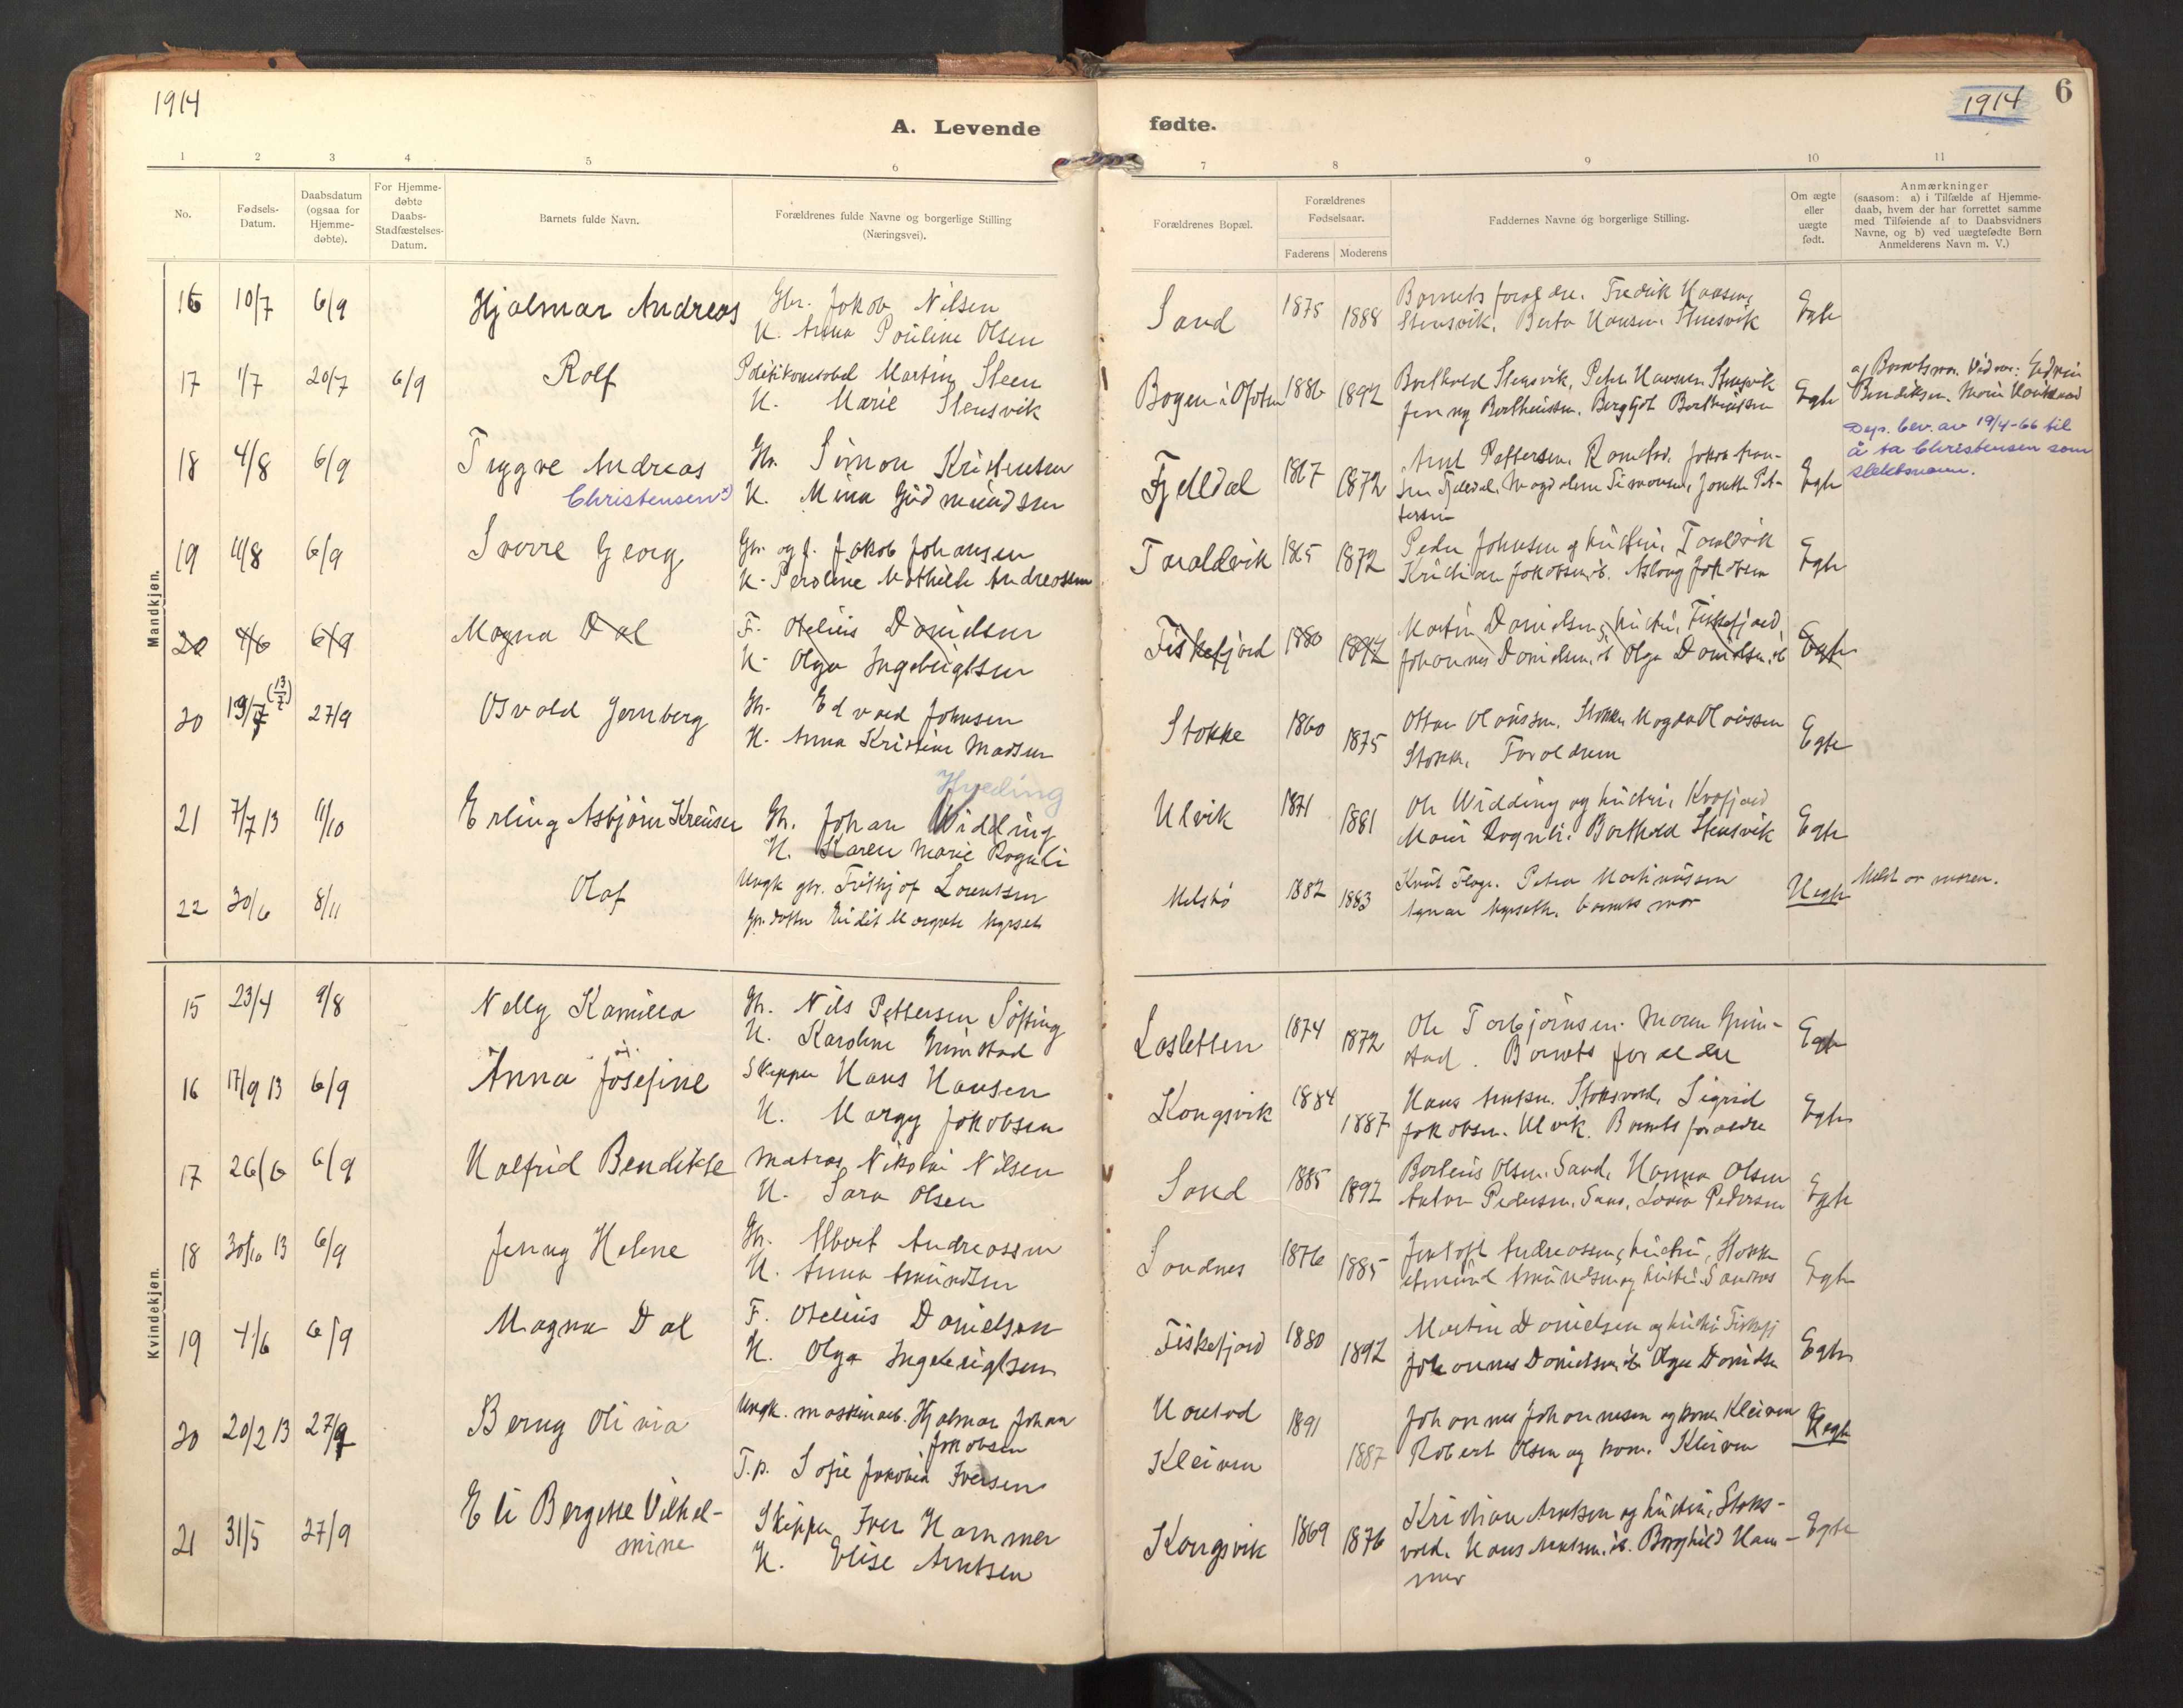 1914
A. Levende
fødte.
1914
6
1 2 3 4 5 6 7 8 9 10 11
No.
Fødsels-
Datum.
Daabsdatum
(ogsaa for
Hjemme-
døbte).
For Hjemme-
døbte
Daabs-
Stadfæstelses-
Datum.
Barnets fulde Navn.
Forældrenes fulde Navne og borgerlige Stilling
(Næringsvei).
Forældrenes Bopæl.
Forældrenes
Fødselsaar.
Faderens Moderens
Faddernes Navne og borgerlige Stilling.
Om ægte
eller
uægte
født.
Anmærkninger
(saasom: a) i Tilfælde af Hjemme-
daab, hvem der har forrettet samme
med Tilføiende af to Daabsvidners
Navne, og b) ved uægtefødte Børn
Anmelderens Navn m. V.)
Mandkjøn.
16 10/7 6/9 Hjalmar Andreas Gbr. Jakob Nilsen
H. Anna Pouline Olsen
Sand 1875 1888 Barnets foreldre. Fredrik Hansen,
Stensvik. Berta Hansen. Stensvik
Egte
17 1/7 20/7 6/9 Rolf Politikonstabel Martin Steen
H. Marie Stensvik
Bogen i Ofoten 1886 1892 Berthold Stensvik, Peter Hansen Stensvik
Jenny Bertheussen, Bergljot Bertheussen
Egte
Bendiksen. Marie
18 4/8 6/9 Trygve Andreas Gbr. Simon Kristensen
Christensen x) H. Mina Gudmundsen
Fjelldal 1867 1872 Arnt Pettersen, Ramstad, Jakob Han-
sen Fjelldal, Magdalene Simonsen, Jonette Pet-
tersen
Egte
Dep. bev. av 19/4-66 til
å ta Christensen som
slektsnavn.
19 11/8 6/9 Sverre Georg Gbr. og f. Jakob Johansen
H. Peroline Mathilde Andreassen
Taraldsvik 1865 1872 Peder Johnsen og hustru, Taraldsvik
Kristian Jakobsen, ib. Aslaug Jakobsen
Egte
20 4/6 6/9 Magna Dal F. Otelius Danielsen
H. Olga Ingebrigtsen
Fiskefjord 1880 1892 Martin Danielsen, hustru, Fiskefjord
Johannes Danielsen, ib Olga Danielsen, ib
Egte
20 13/7 (13/7) 27/9 Osvald Jernberg Gbr. Edvard Johnsen
H. Anna Kristine Madsen
Stokke 1860 1875 Ottar Olaussen, Stokke Magda Olaussen
Stokke. Foreldrene
Egte
Hveding
21 7/7 13 11/10 Erling Asbjørn Kreuser Gbr. Johan Widding
H. Karen Marie Rognli
Ulvik 1871 1881 Ole Widding og hustru, Kvæfjord
Marie Rognli. Berthold Stensvik
Egte
22 30/6 8/11 Olaf Ungk. gbr. Fritjof Lorentsen
Melsbø 1882 1883 Petra Martinussen
barnets mor
Uegte
Meldt av moren.
Kvindekjøn.
15 23/4 9/8 Nelly Kamilla Gbr. Nils Pettersen Søfting
H. Karoline Grimstad
Losletten 1874 1872 Ole Torbjørnsen. Maren Grim-
stad. Barnets foreldre
Egte
16 17/9 13 6/9 Anna Josefine Skipper Hans Hansen
H. Margy Jakobsen
Kongsvik 1884 1887 Hans Arntsen. Stoksvold, Sigrid
Jakobsen. Ulvik. Barnets foreldre
Egte
17 26/6 6/9 Halfrid Bendikte Matros Nikolai Nilsen
H. Sara Olsen
Sand 1885 1892 Bertheus Olsen, Sand, Hanna Olsen
Anton Pedersen. Sand, Lovisa Pedersen
Egte
18 30/10 13 6/9 Jenny Helene Gbr. Albert Andreassen
H. Anna Amundsen
Sandnes 1876 1885 Jentoft Andreassen, hustru, Stokke
Amund Amundsen og hustru. Sandnes
Egte
19 4/6 6/9 Magna Dal F. Otelius Danielsen
H. Olga Ingebrigtsen
Fiskefjord 1880 1892 Martin Danielsen og hustru Fiskefj
Johannes Danielsen, ib Olga Danielsen
Egte
20 20/2 13 27/9 Berny Olivia Ungk. maskinarb. Hjalmar Johan
Jakobsen
T.p. Sofie Jakobia Iversen
Harstad 1891
Kleiven 1887
Johannes Johannesen og kone Kleiven
Robert Olsen og kone. Kleiven
Uegte
21 31/5 27/9 Eli Bergitte Vilhel-
mine
Skipper Iver Hammer
H. Elise Arntsen
Kongsvik 1869 1876 Kristian Arntsen og hustru, Stoks-
vold. Hans Arntsen, ib. Borghild Ham-
mer
Egte